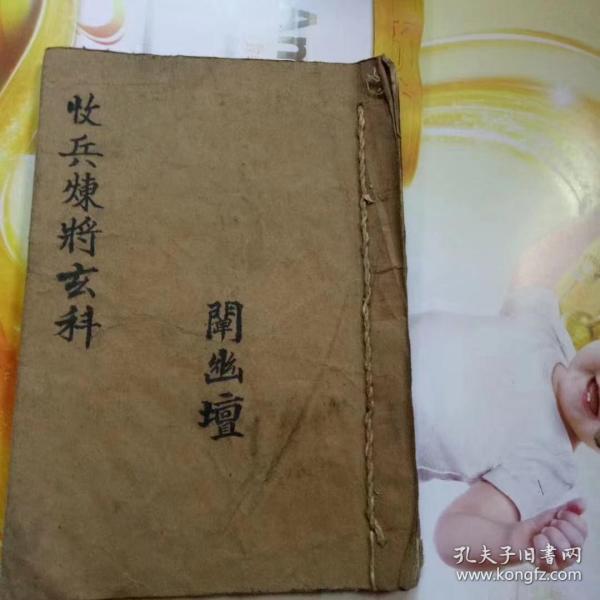 收兵煉將玄科
闡幽壇
An
孔夫子旧书网
www.kongfz.com